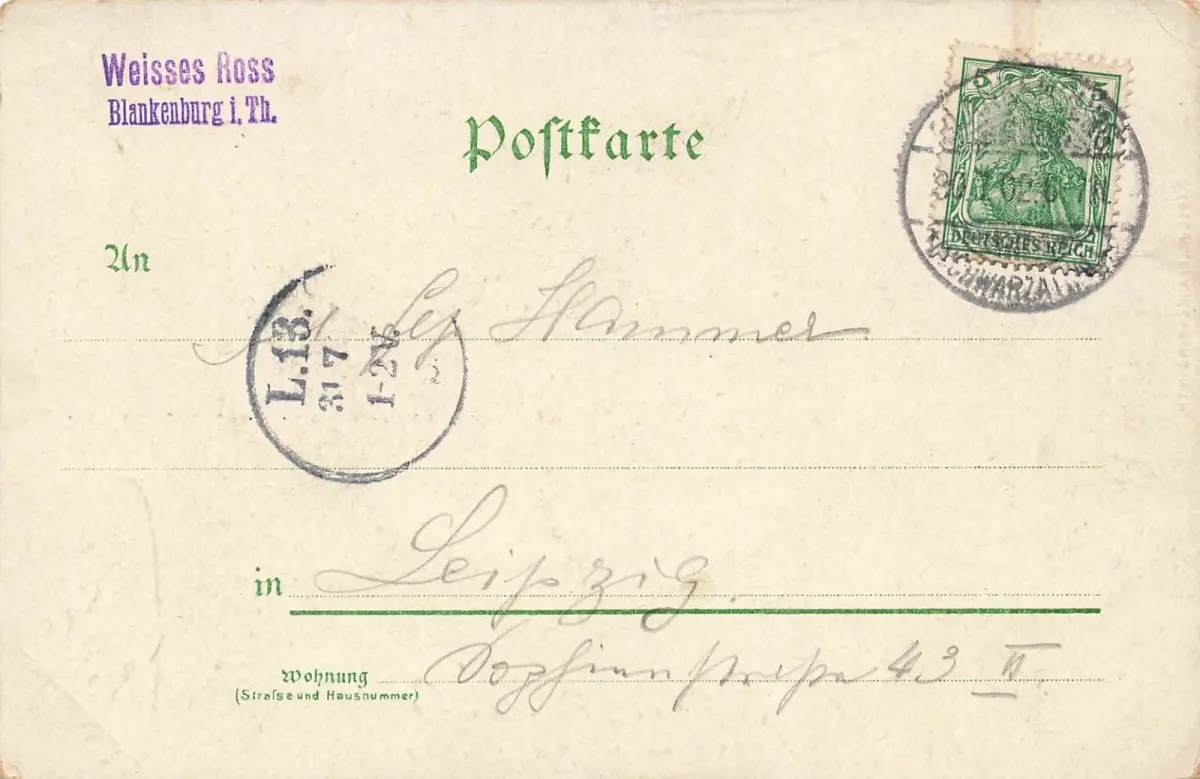 Weisses Ross
Blankenburg i. Th.
Postkarte
5 5
30.7.02.6-7N.
DEUTSCHES REICH
SCHWARZA
An
Hammer
L.13.
31 7
1-2N.
in Leipzig.
Wohnung
(Strasse und Hausnummer)
Sophienstrasse 43 II.